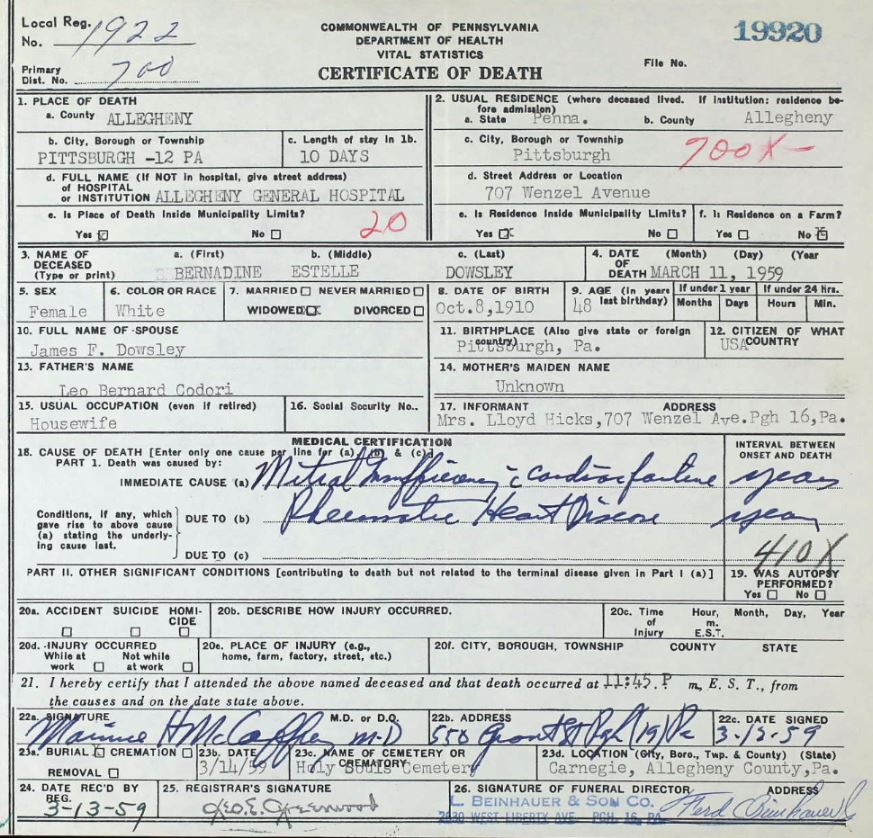 Local Reg. No. 1922
COMMONWEALTH OF PENNSYLVANIA
DEPARTMENT OF HEALTH
VITAL STATISTICS
CERTIFICATE OF DEATH
19920
File No.
Primary Dist. No. 700
1. PLACE OF DEATH
a. County ALLEGHENY
b. City, Borough or Township
PITTSBURGH -12 PA
c. Length of stay in 1b.
10 DAYS
d. FULL NAME (If NOT in hospital, give street address)
of HOSPITAL
or INSTITUTION ALLEGHENY GENERAL HOSPITAL
e. Is Place of Death Inside Municipality Limits?
Yes ☒ No ☐
20
2. USUAL RESIDENCE (where deceased lived. If institution: residence before admission)
a. State Penna. b. County Allegheny
c. City, Borough or Township
Pittsburgh
700X-
d. Street Address or Location
707 Wenzel Avenue
e. Is Residence Inside Municipality Limits?
Yes ☒ No ☐
f. Is Residence on a Farm?
Yes ☐ No ☒
3. NAME OF DECEASED (Type or print)
a. (First) b. (Middle) c. (Last)
BERNADINE ESTELLE DOWSLEY
4. DATE OF DEATH (Month) (Day) (Year
MARCH 11, 1959
5. SEX
Female
6. COLOR OR RACE
White
7. MARRIED ☐ NEVER MARRIED ☐
WIDOWED ☒ DIVORCED ☐
8. DATE OF BIRTH
Oct.8,1910
9. AGE (In years last birthday)
48
If under 1 year
Months Days
If under 24 hrs.
Hours Min.
10. FULL NAME OF SPOUSE
James F. Dowsley
11. BIRTHPLACE (Also give state or foreign country)
Pittsburgh, Pa.
12. CITIZEN OF WHAT COUNTRY
USA
13. FATHER'S NAME
Leo Bernard Codori
14. MOTHER'S MAIDEN NAME
Unknown
15. USUAL OCCUPATION (even if retired)
Housewife
16. Social Security No..
17. INFORMANT ADDRESS
Mrs. Lloyd Hicks,707 Wenzel Ave.Pgh 16,Pa.
MEDICAL CERTIFICATION
18. CAUSE OF DEATH [Enter only one cause per line for (a) (b) & (c)]
PART 1. Death was caused by:
INTERVAL BETWEEN ONSET AND DEATH
IMMEDIATE CAUSE (a) Mitral Insufficiency c̄ cardiac failure years
Conditions, if any, which gave rise to above cause (a) stating the underlying cause last.
DUE TO (b) Rheumatic Heart Disease years
DUE TO (c)
410X
PART II. OTHER SIGNIFICANT CONDITIONS [contributing to death but not related to the terminal disease given in Part I (a)]
19. WAS AUTOPSY PERFORMED?
Yes ☐ No ☐
20a. ACCIDENT SUICIDE HOMICIDE
20b. DESCRIBE HOW INJURY OCCURRED.
20c. Time of Injury Hour, m. E.S.T. Month, Day, Year
20d. INJURY OCCURRED
While at work ☐ Not while at work ☐
20e. PLACE OF INJURY (e.g., home, farm, factory, street, etc.)
20f. CITY, BOROUGH, TOWNSHIP COUNTY STATE
21. I hereby certify that I attended the above named deceased and that death occurred at 11:45 P m, E. S. T., from
the causes and on the date state above.
22a. SIGNATURE M.D. or D.O.
H McCaffrey M-D
22b. ADDRESS
550 Grant St Pgh (19) Pa
22c. DATE SIGNED
3-12-59
23a. BURIAL ☒ CREMATION ☐
REMOVAL ☐
23b. DATE
3/14/59
23c. NAME OF CEMETERY OR CREMATORY
Holy Souls Cemetery
23d. LOCATION (City, Boro., Twp. & County) (State)
Carnegie, Allegheny County,Pa.
24. DATE REC'D BY REG.
3-13-59
25. REGISTRAR'S SIGNATURE
Geo. E. Greenwood
26. SIGNATURE OF FUNERAL DIRECTOR ADDRESS
L. BEINHAUER & SON CO.
2630 WEST LIBERTY AVE. PGH. 16, PA.
Beinhauer